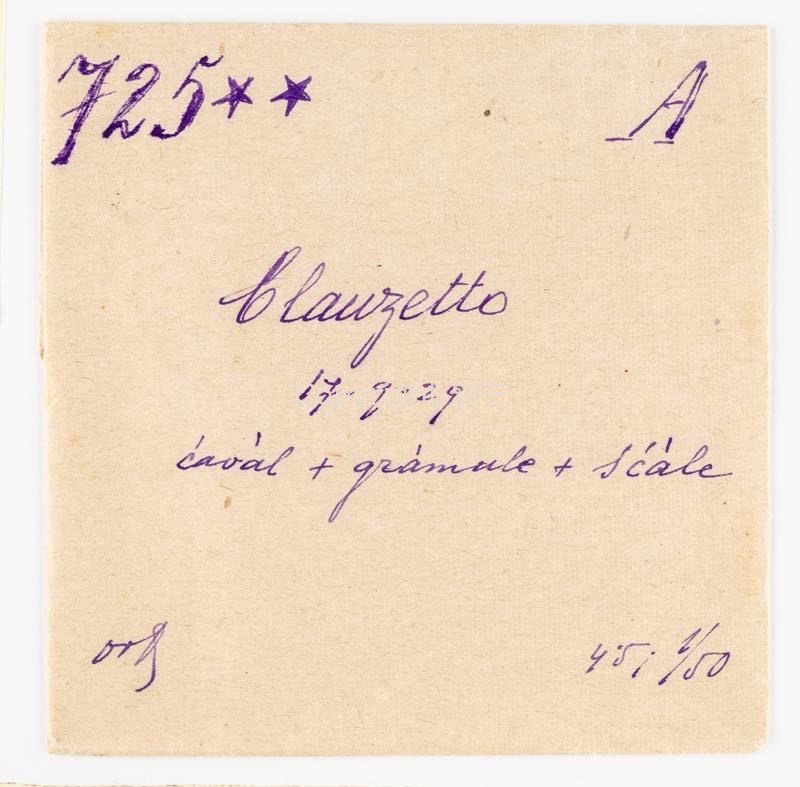 725** A
Clauzetto
17-9-29
ćavàl + gràmule + śćàle
4.5; 1/50